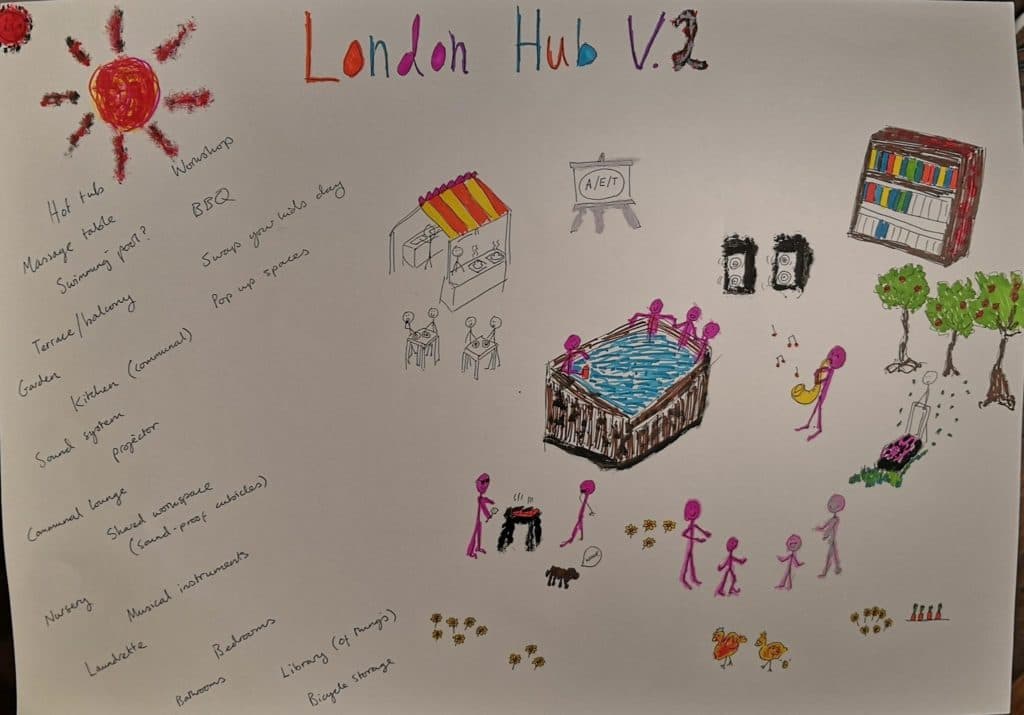 London Hub V.2
Hot tub
Workshop
Massage table
BBQ
Swimming pool?
Swaps your kids day
Terrace/balcony
Pop up spaces
Garden
Kitchen (communal)
Sound system
projector
Communal lounge
Shared workspace
(sound-proof cubicles)
Nursery
Musical instruments
Laundrette
Bedrooms
Library (of things)
Bicycle storage
A/E/T